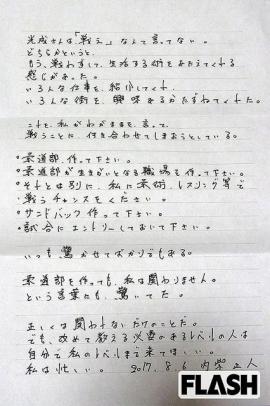 光成さんは「戦え」なんて言ってない。
どちらかというと、
もう、戦わずして、生活する術をあたえてくれる
感じがあった。
いろんな仕事を、紹介してくれ、
いろんな街を、興味あるかたずねてくれた。
これを、私がわがままを、言って、
戦うことに、付き合わせてしまおうとしている。
・柔道部、作って下さい。
・柔道部が生きがいとなる職場を作って下さい。
・それとは別に、私に柔術、レスリング等で
戦うチャンスをください。
・サンドバック作って下さい。
・試合にエントリーしておいて下さい。
いつも驚かせてばかりでもある。
柔道部を作っても、私は関わりません。
という言葉にも、驚いてた。
正しくは関われないだけのことだ。
でも、改めて教える必要のあるレベルの人は
自分で私のレベルまで来てほしい。
私は忙しい。 2017. 8. 6 内柴正人
FLASH